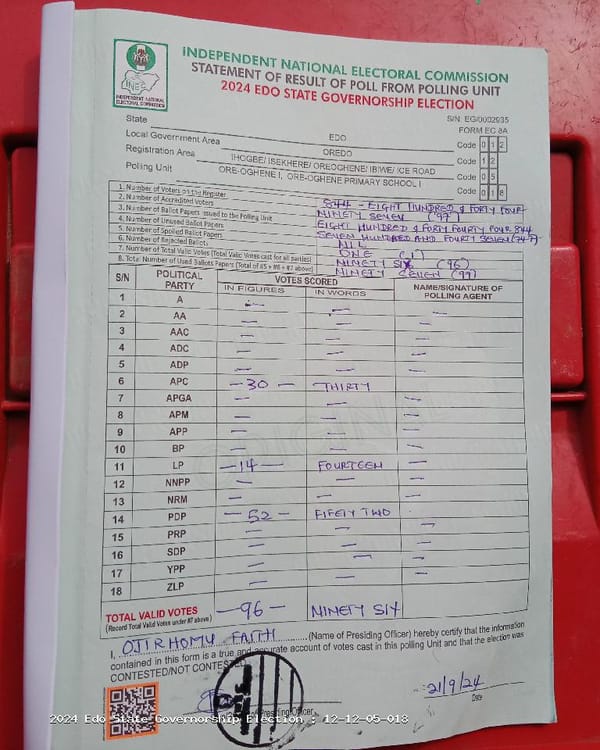 INDEPENDENT NATIONAL ELECTORAL COMMISSION
STATEMENT OF RESULT OF POLL FROM POLLING UNIT
2024 EDO STATE GOVERNORSHIP ELECTION
INEC
INDEPENDENT NATIONAL ELECTORAL COMMISSION
S/N: EG/0002935
FORM EC 8A
State EDO Code 0 1 2
Local Government Area OREDO Code 1 2
Registration Area IHOGBE/ ISEKHERE/ OREOGHENE/ IBIWE/ ICE ROAD Code 0 5
Polling Unit ORE-OGHENE I, ORE-OGHENE PRIMARY SCHOOL I Code 0 1 8
1. Number of Voters on the Register 844 - EIGHT HUNDRED & FORTY FOUR
2. Number of Accredited Voters NINETY SEVEN (97)
3. Number of Ballot Papers Issued to the Polling Unit EIGHT HUNDRED & FORTY FOURTY FOUR 844
4. Number of Unused Ballot Papers SEVEN HUNDRED AND FOURTY SEVEN (747)
5. Number of Spoiled Ballot Papers NIL
6. Number of Rejected Ballots ONE (1)
7. Number of Total Valid Votes (Total Valid Votes cast for all parties) NINETY SIX (96)
8. Total Number of Used Ballot Papers (Total of #5 + #6 + #7 above) NINETY SEVEN (97)
S/N POLITICAL PARTY VOTES SCORED NAME/SIGNATURE OF POLLING AGENT
IN FIGURES IN WORDS
1 A — —
2 AA — — —
3 AAC — —
4 ADC — — —
5 ADP — — —
6 APC —30— THIRTY
7 APGA — — —
8 APM — — —
9 APP — — —
10 BP — — —
11 LP —14— FOURTEEN —
12 NNPP — — —
13 NRM — — —
14 PDP —52— FIFETY TWO —
15 PRP — — —
16 SDP — — —
17 YPP — — —
18 ZLP — — —
TOTAL VALID VOTES —96— NINETY SIX
(Record Total Valid Votes under #7 above)
I, OJIRHOMU FAITH (Name of Presiding Officer) hereby certify that the information
contained in this form is a true and accurate account of votes cast in this polling Unit and that the election was
CONTESTED/NOT CONTESTED
21/9/24
Date
Presiding Officer
2024 Edo State Governorship Election : 12-12-05-018